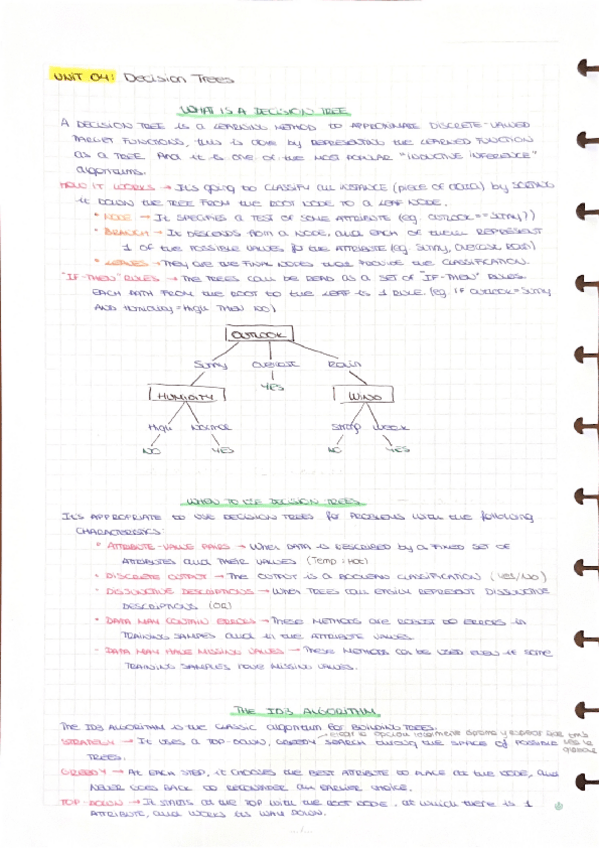 UNIT 04: Decision Trees
WHAT IS A DECISION TREE
A DECISION TREE is a LEARNING METHOD TO APPROXIMATE DISCRETE-VALUED
TARGET FUNCTIONS, this is done by REPRESENTING the LEARNED FUNCTION
as a TREE. And it is one of the most popular "INDUCTIVE INFERENCE"
algorithms.
HOW IT WORKS → It's going to CLASSIFY an INSTANCE (piece of data) by SORTING
it down the TREE FROM the ROOT NODE to a LEAF NODE.
• NODE → It SPECIFIES a TEST of SOME ATTRIBUTE (eg. OUTLOOK == Sunny?)
• BRANCH → It DESCENDS from a NODE, and each of them REPRESENT
1 of the POSSIBLE VALUES for the ATTRIBUTE (eg Sunny, Overcast, Rain)
• LEAVES → They are the FINAL NODES that PROVIDE the CLASSIFICATION.
"IF-THEN" RULES → The TREES can be READ as a SET of "IF-THEN" RULES.
EACH PATH FROM the ROOT to the LEAF is 1 RULE. (eg. IF Outlook = Sunny
AND Humidity = High THEN NO)
OUTLOOK
Sunny Overcast Rain
YES
HUMIDITY WIND
High Normal Strong Weak
NO YES NO YES
WHEN TO USE DECISION TREES
It's APPROPRIATE to USE DECISION TREES for PROBLEMS with the following
CHARACTERISTICS:
• ATTRIBUTE-VALUE PAIRS → When DATA is DESCRIBED by a FIXED SET OF
ATTRIBUTES and THEIR VALUES (Temp = Hot)
• DISCRETE OUTPUT → The OUTPUT is a BOOLEAN CLASSIFICATION (YES/NO)
• DISJUNCTIVE DESCRIPTIONS → When TREES can easily REPRESENT DISJUNCTIVE
DESCRIPTIONS (OR)
• DATA MAY CONTAIN ERRORS → These METHODS are ROBUST to ERRORS in
TRAINING SAMPLES and in the ATTRIBUTE VALUES
- DATA MAY HAVE MISSING VALUES → These METHODS can be USED even if some
TRAINING SAMPLES have MISSING VALUES.
THE ID3 ALGORITHM
The ID3 ALGORITHM is the CLASSIC algorithm for BUILDING TREES.
STRATEGY → It USES a TOP-DOWN, GREEDY SEARCH through the SPACE of POSSIBLE
TREES.
GREEDY → At EACH STEP, it CHOOSES the BEST ATTRIBUTE to PLACE at the NODE, and
NEVER GOES BACK to RECONSIDER an EARLIER CHOICE.
TOP-DOWN → It STARTS at the TOP with the ROOT NODE, at which there is 1
ATTRIBUTE, and WORKS its WAY DOWN.